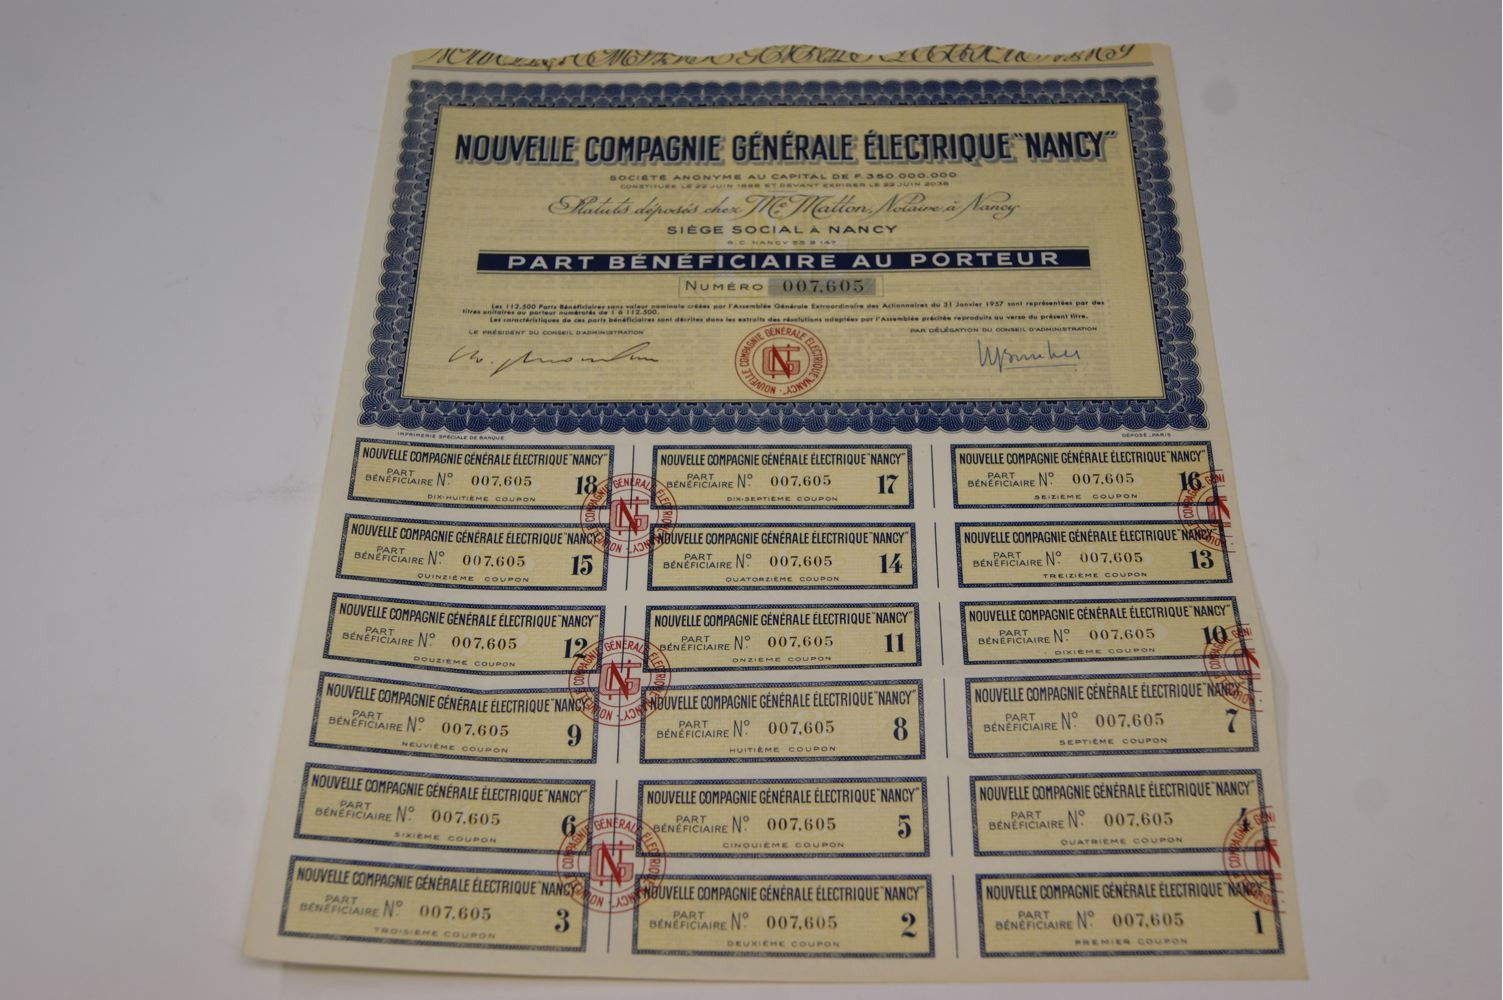 NOUVELLE COMPAGNIE GÉNÉRALE ÉLECTRIQUE "NANCY"
SOCIÉTÉ ANONYME AU CAPITAL DE F. 350.000.000
CONSTITUÉE LE 22 JUIN 1898 ET DEVANT EXPIRER LE 22 JUIN 2038
Statuts déposés chez Me Matton, Notaire à Nancy
SIÈGE SOCIAL À NANCY
R.C. NANCY 55 B 147
PART BÉNÉFICIAIRE AU PORTEUR
NUMÉRO 007,605
Les 112.500 Parts Bénéficiaires sans valeur nominale créées par l'Assemblée Générale Extraordinaire des Actionnaires du 31 Janvier 1957 sont représentées par des
titres unitaires au porteur numérotés de 1 à 112.500.
Les caractéristiques de ces parts bénéficiaires sont décrites dans les extraits des résolutions adoptées par l'Assemblée précitée reproduits au verso du présent titre.
LE PRÉSIDENT DU CONSEIL D'ADMINISTRATION
PAR DÉLÉGATION DU CONSEIL D'ADMINISTRATION
NOUVELLE COMPAGNIE GÉNÉRALE ÉLECTRIQUE "NANCY"
IMPRIMERIE SPÉCIALE DE BANQUE
DÉPOSÉ, PARIS
NOUVELLE COMPAGNIE GÉNÉRALE ÉLECTRIQUE "NANCY"
PART
BÉNÉFICIAIRE N° 007,605 18
DIX-HUITIÈME COUPON
NOUVELLE COMPAGNIE GÉNÉRALE ÉLECTRIQUE "NANCY"
PART
BÉNÉFICIAIRE N° 007,605 17
DIX-SEPTIÈME COUPON
NOUVELLE COMPAGNIE GÉNÉRALE ÉLECTRIQUE "NANCY"
PART
BÉNÉFICIAIRE N° 007,605 16
SEIZIÈME COUPON
NOUVELLE COMPAGNIE GÉNÉRALE ÉLECTRIQUE "NANCY"
PART
BÉNÉFICIAIRE N° 007,605 15
QUINZIÈME COUPON
NOUVELLE COMPAGNIE GÉNÉRALE ÉLECTRIQUE "NANCY"
PART
BÉNÉFICIAIRE N° 007,605 14
QUATORZIÈME COUPON
NOUVELLE COMPAGNIE GÉNÉRALE ÉLECTRIQUE "NANCY"
PART
BÉNÉFICIAIRE N° 007,605 13
TREIZIÈME COUPON
NOUVELLE COMPAGNIE GÉNÉRALE ÉLECTRIQUE "NANCY"
PART
BÉNÉFICIAIRE N° 007,605 12
DOUZIÈME COUPON
NOUVELLE COMPAGNIE GÉNÉRALE ÉLECTRIQUE "NANCY"
PART
BÉNÉFICIAIRE N° 007,605 11
ONZIÈME COUPON
NOUVELLE COMPAGNIE GÉNÉRALE ÉLECTRIQUE "NANCY"
PART
BÉNÉFICIAIRE N° 007,605 10
DIXIÈME COUPON
NOUVELLE COMPAGNIE GÉNÉRALE ÉLECTRIQUE "NANCY"
PART
BÉNÉFICIAIRE N° 007,605 9
NEUVIÈME COUPON
NOUVELLE COMPAGNIE GÉNÉRALE ÉLECTRIQUE "NANCY"
PART
BÉNÉFICIAIRE N° 007,605 8
HUITIÈME COUPON
NOUVELLE COMPAGNIE GÉNÉRALE ÉLECTRIQUE "NANCY"
PART
BÉNÉFICIAIRE N° 007,605 7
SEPTIÈME COUPON
NOUVELLE COMPAGNIE GÉNÉRALE ÉLECTRIQUE "NANCY"
PART
BÉNÉFICIAIRE N° 007,605 6
SIXIÈME COUPON
NOUVELLE COMPAGNIE GÉNÉRALE ÉLECTRIQUE "NANCY"
PART
BÉNÉFICIAIRE N° 007,605 5
CINQUIÈME COUPON
NOUVELLE COMPAGNIE GÉNÉRALE ÉLECTRIQUE "NANCY"
PART
BÉNÉFICIAIRE N° 007,605 4
QUATRIÈME COUPON
NOUVELLE COMPAGNIE GÉNÉRALE ÉLECTRIQUE "NANCY"
PART
BÉNÉFICIAIRE N° 007,605 3
TROISIÈME COUPON
NOUVELLE COMPAGNIE GÉNÉRALE ÉLECTRIQUE "NANCY"
PART
BÉNÉFICIAIRE N° 007,605 2
DEUXIÈME COUPON
NOUVELLE COMPAGNIE GÉNÉRALE ÉLECTRIQUE "NANCY"
PART
BÉNÉFICIAIRE N° 007,605 1
PREMIER COUPON